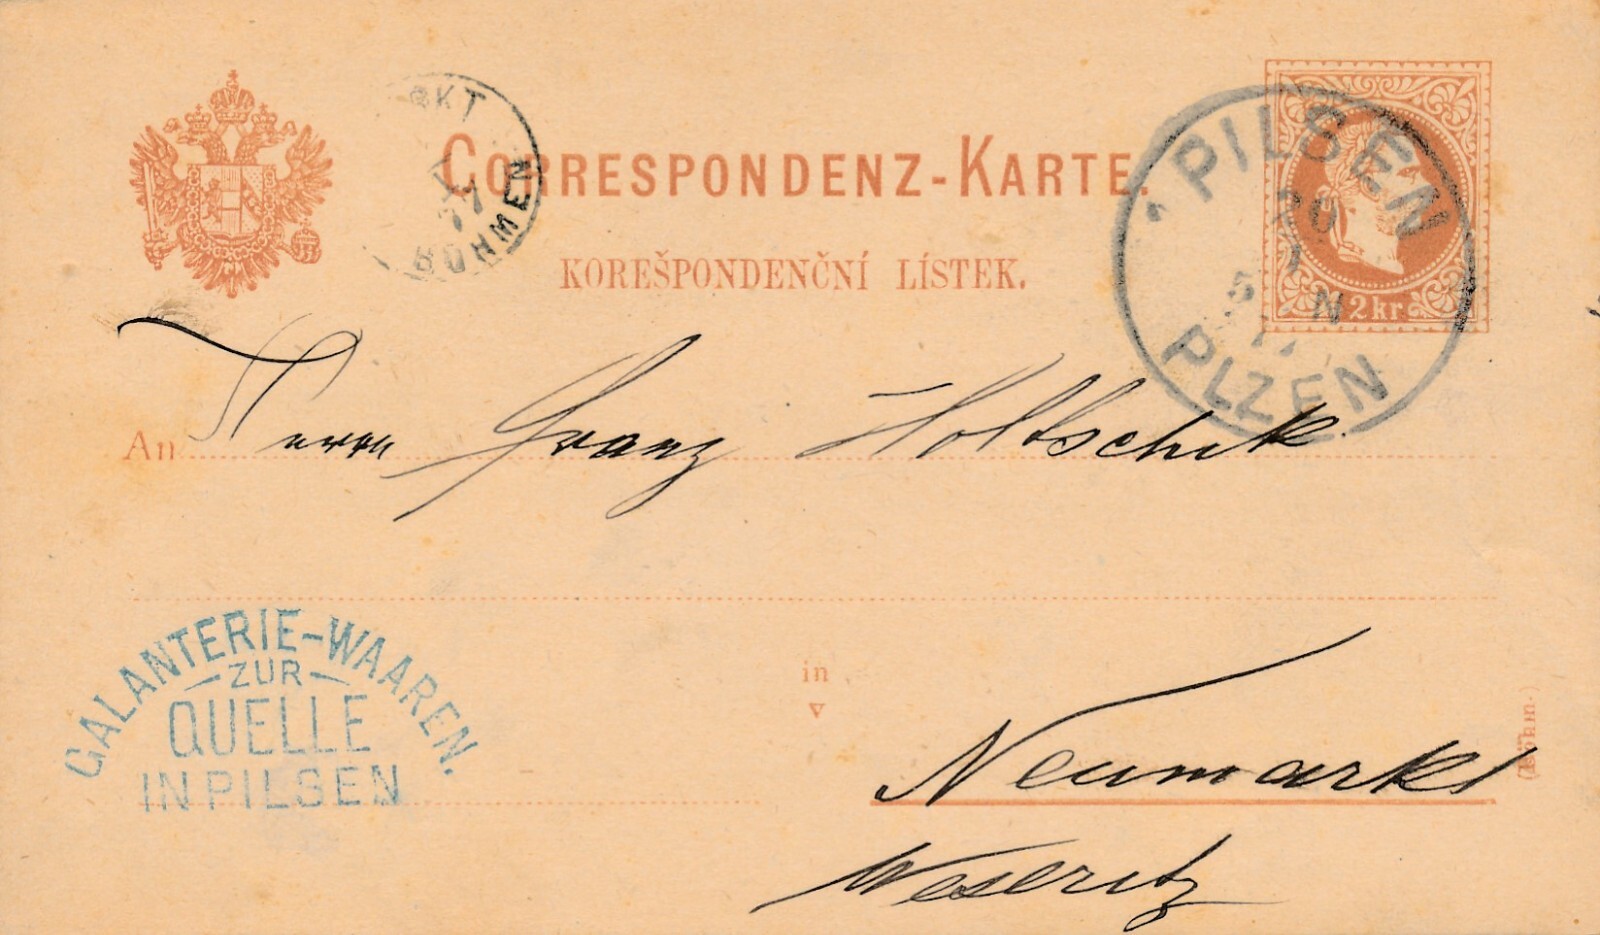 CORRESPONDENZ-KARTE.
KOREŠPONDENČNÍ LÍSTEK.
2 kr.
PILSEN
20
5 N
77
PLZEN
77
BÖHMEN
An Herrn Franz Holtschik
GALANTERIE-WAAREN.
ZUR
QUELLE
IN PILSEN
in
Neumarkt
Weseritz
(Böhm.)